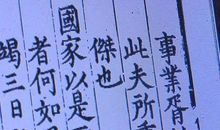 事業胥
此夫所重
傑也
國家以是
者何如
竭三日